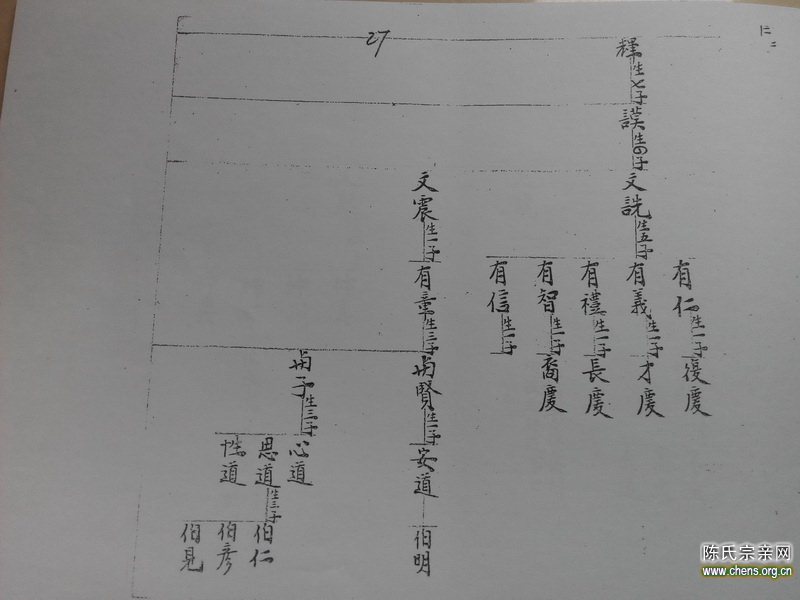 27
仁二
釋生七子
謨生四子
文詵生五子
有仁生一子
復慶
有義生一子
才慶
有禮生一子
長慶
有智生一子
裔慶
有信生一子
文震生一子
有章生三子
賢生一子
安道
伯明
子生三子
心道
思道生三子
性道
伯仁
伯彥
伯見
陈氏宗亲网
www.chens.org.cn